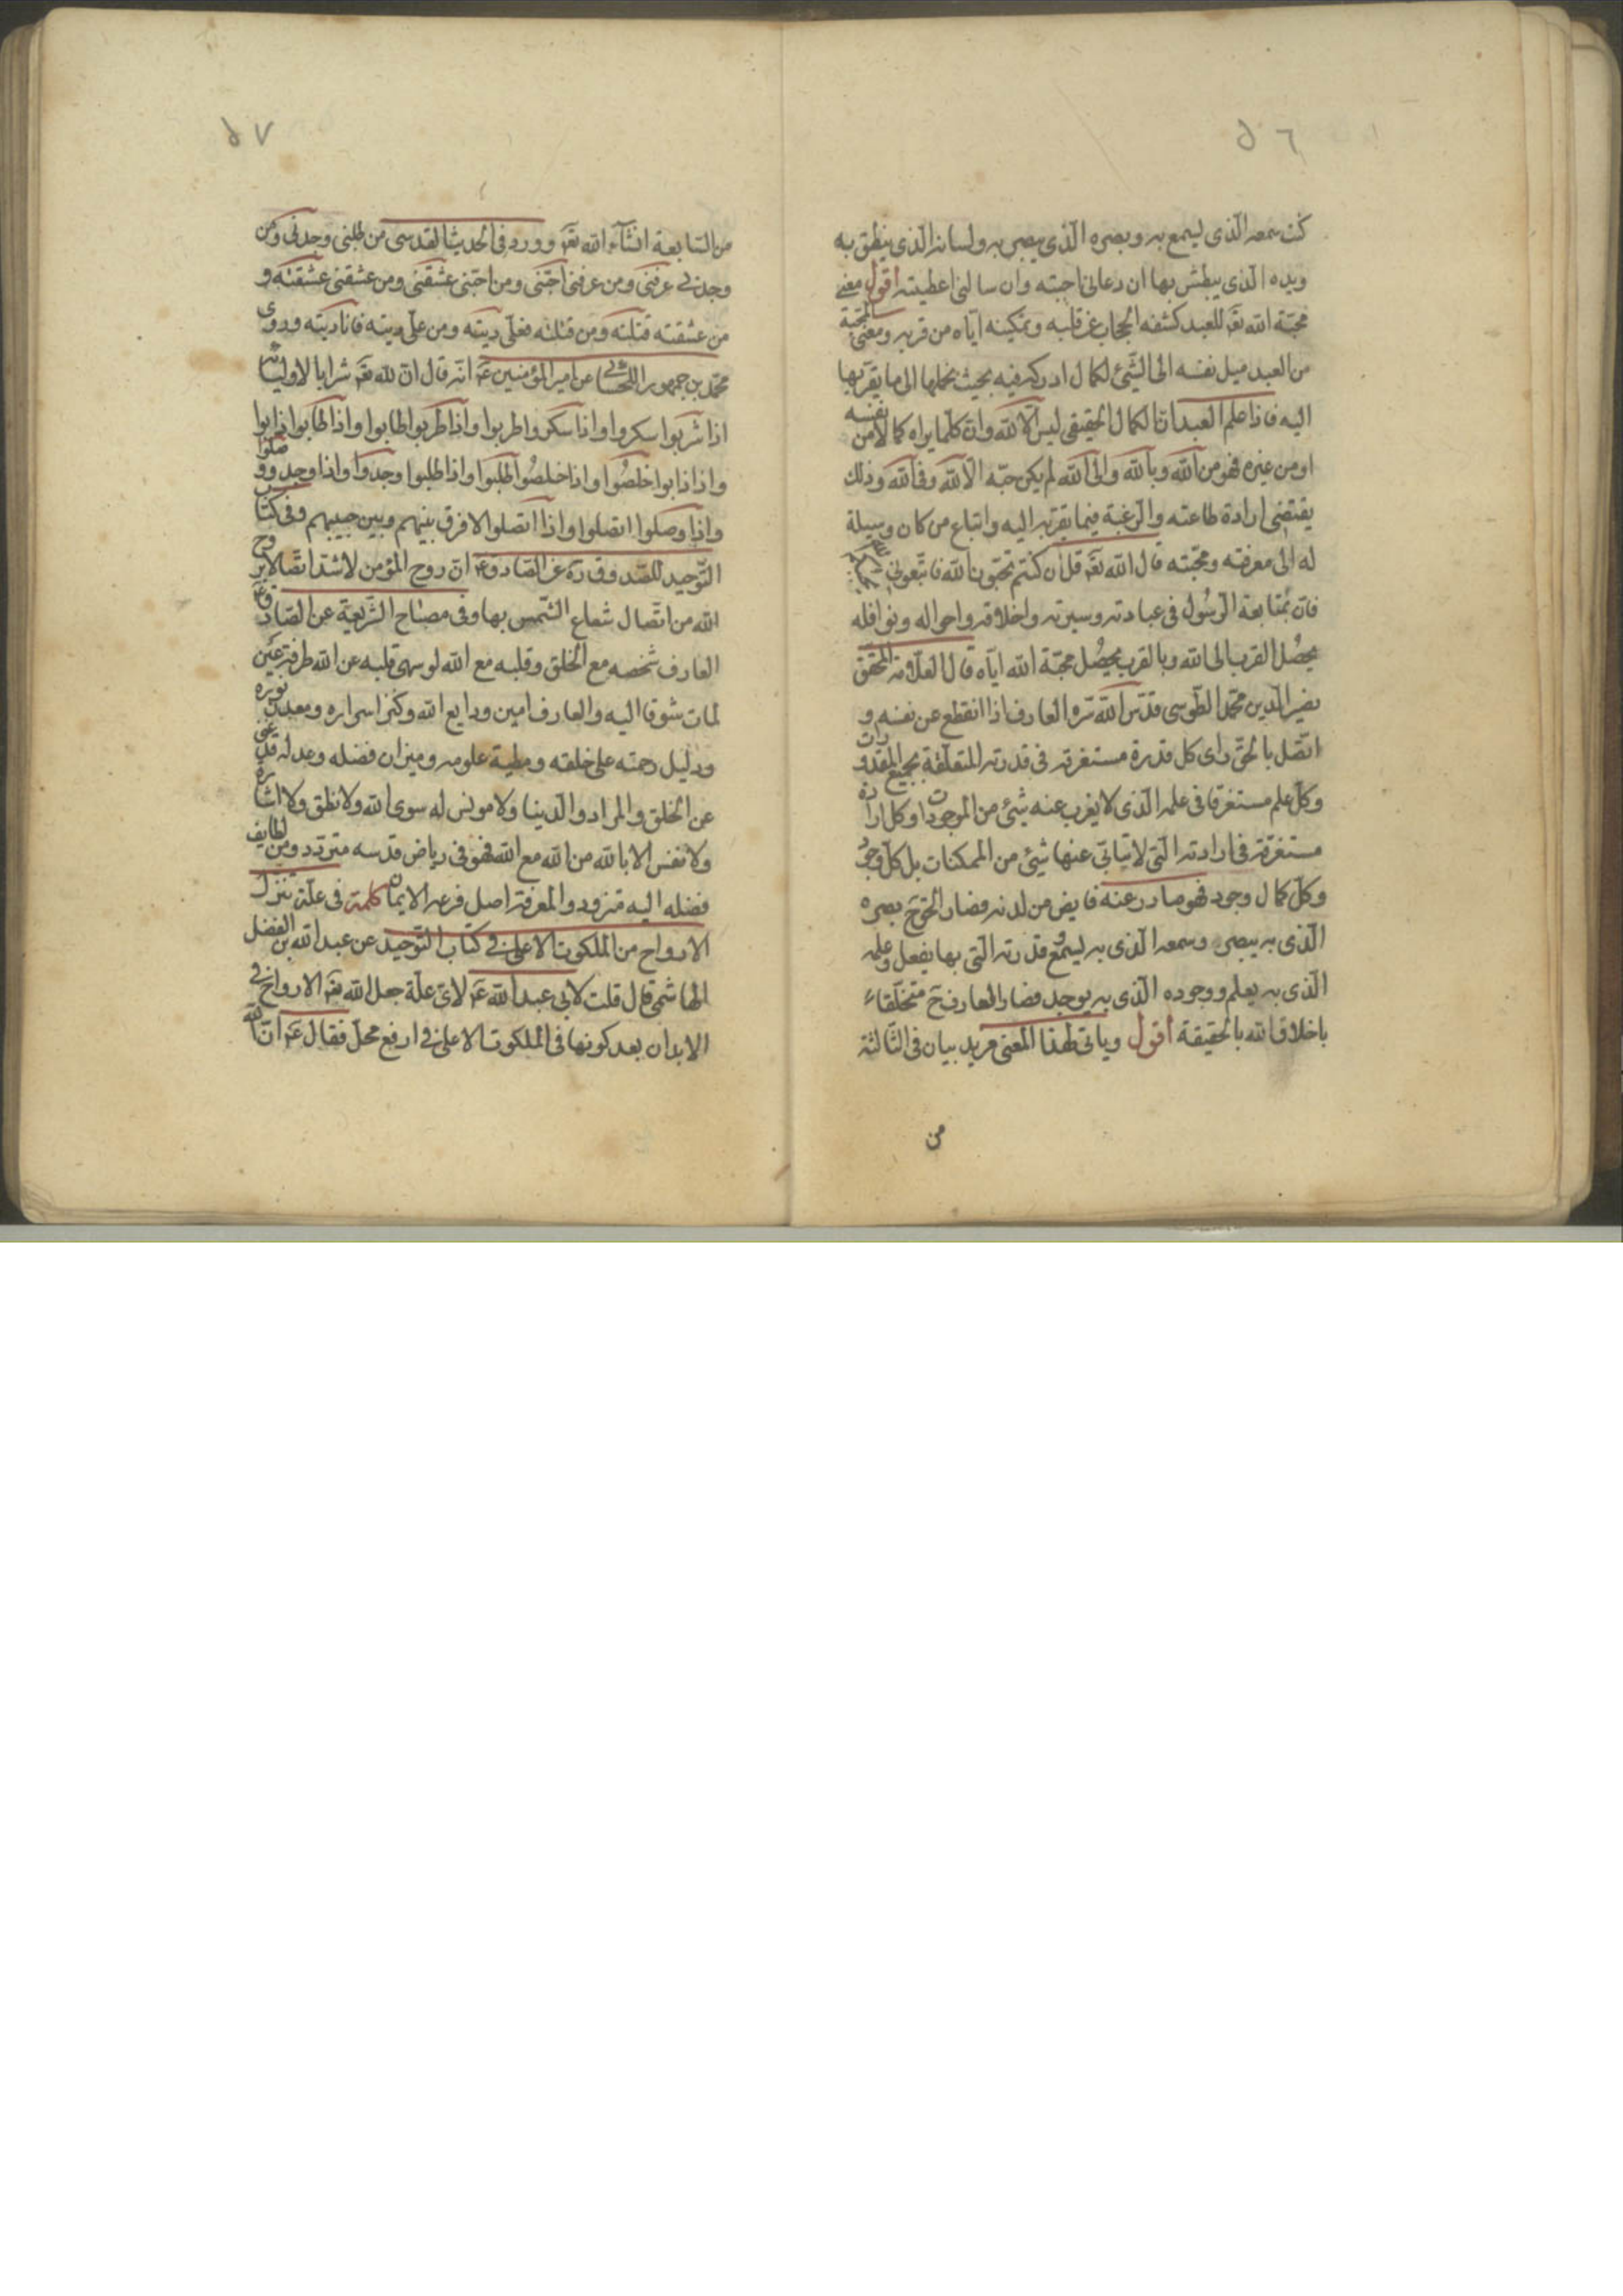 ٥٦
كنت سمعه الذى يسمع به وبصره الذى يبصر به ولسانه الذى ينطق به
ويده الذى يبطش بها ان دعانى اجبته وان سالنى اعطيته اقول معنى
محبّة الله تعَ للعبد كشفه الحجاب عن قلبه وتمكينه ايّاه من قربه ومعنى المحبّة
من العبد ميل نفسه الى الشئ لكمال ادركه فيه بحيث يحملها الى ما يقرّبها
اليه فاذا علم العبد انّ الكمال الحقيقى ليس الّا لله وانّ كلّما يراه كمالا من نفسه
او من غيره فهو من الله وبالله والى الله لم يكن حبّه الّا لله وفى الله وذلك
يقتضى ارادة طاعته والرّغبة فيما يقرّبه اليه واتباع من كان وسيلة
له الى معرفته ومحبّته قال الله تعَ قل ان كنتم تحبّون الله فاتّبعونى
فانّ بمتابعة الرّسُول فى عبادته وسيرته واخلاقه واحواله ونوافله
يحصُل القرب الى الله وبالقرب يحصُل محبّة الله ايّاه قال العلّامة المحقّق
نصير الدّين محمّد الطّوسى قدّس الله سرّه العارف اذا انقطع عن نفسه و
اتّصل بالحقّ راى كل قدرة مستغرقة فى قدرته المتعلّقة بجميع المقدورات
وكلّ علم مستغرقا فى علمه الذى لا يعزب عنه شئ من الموجودات وكل ارادة
مستغرقة فى ارادته الّتى لا يتابّى عنها شئ من الممكنات بل كلّ وجود
وكلّ كمال وجود فهو صادر عنه فايض من لدنه فصار الحقّ حَ بصره
الّذى به يبصر وسمعه الّذى به يسمع وقدرته الّتى بها يفعل وعلمه
الّذى به يعلم ووجوده الّذى به يوجد فصار العارف حَ متخلّقا
باخلاق الله بالحقيقة اقول وياتى لهذا المعنى مزيد بيان فى الثّالثة
من
٥٧
من السّابعة انشاء الله تعَ وورد فى الحديث القدسى من طلبنى وجدنى ومن
وجدنى عرفنى ومن عرفنى احبّنى ومن احبّنى عشقنى ومن عشقنى عشقته و
من عشقته قتلته ومن قتلته فعلىّ ديته ومن علىّ ديته فانا ديته وروى
محمّد بن جمهور اللحسائى عن امير المؤمنين عَ انّه قال انّ لله تعَ شرابا لاوليائه
اذا شربوا سكروا واذا سكروا طربوا واذا طربوا طابوا واذا طابوا ذابوا
واذا ذابوا خلصُوا واذا خلصُوا طلبوا واذا طلبوا وجدوا واذا وجدوا وصلوا
واذا وصلوا اتصلوا واذا اتصلوا لا فرق بينهم وبين حبيبهم وفى كتاب
التّوحيد للصّدوق عن الصّادق عَ انّ روح المؤمن لاشدّ اتّصالا بروح
الله من اتّصال شعاع الشّمس بها وفى مصباح الشّريعة عن الصّادق عَ
العارف شخصه مع الخلق وقلبه مع الله لو سهى قلبه عن الله طرفة عين
لمات شوقا اليه والعارف امين ودايع الله وكنز اسراره ومعدن نوره
ودليل رحمته على خلقه ومطية علومه وميزان فضله وعدله قد غنى
عن الخلق والمراد والدّنيا ولا مونس له سوى الله ولا نطق ولا اشارة
ولا نفس الا بالله من الله مع الله فهو فى رياض قدسه متردّد ومن لطايف
فضله اليه متزود والمعرفة اصل فرعه الايمان كلمة فى علّة تنزل
الارواح من الملكوت الاعلى فى كتاب التّوحيد عن عبد الله بن الفضل
الهاشمى قال قلت لابى عبد الله عَ لاىّ علّة جعل الله تعَ الارواح فى
الابدان بعد كونها فى الملكوت الاعلى فى ارفع محلّ فقال عَ انّ الله